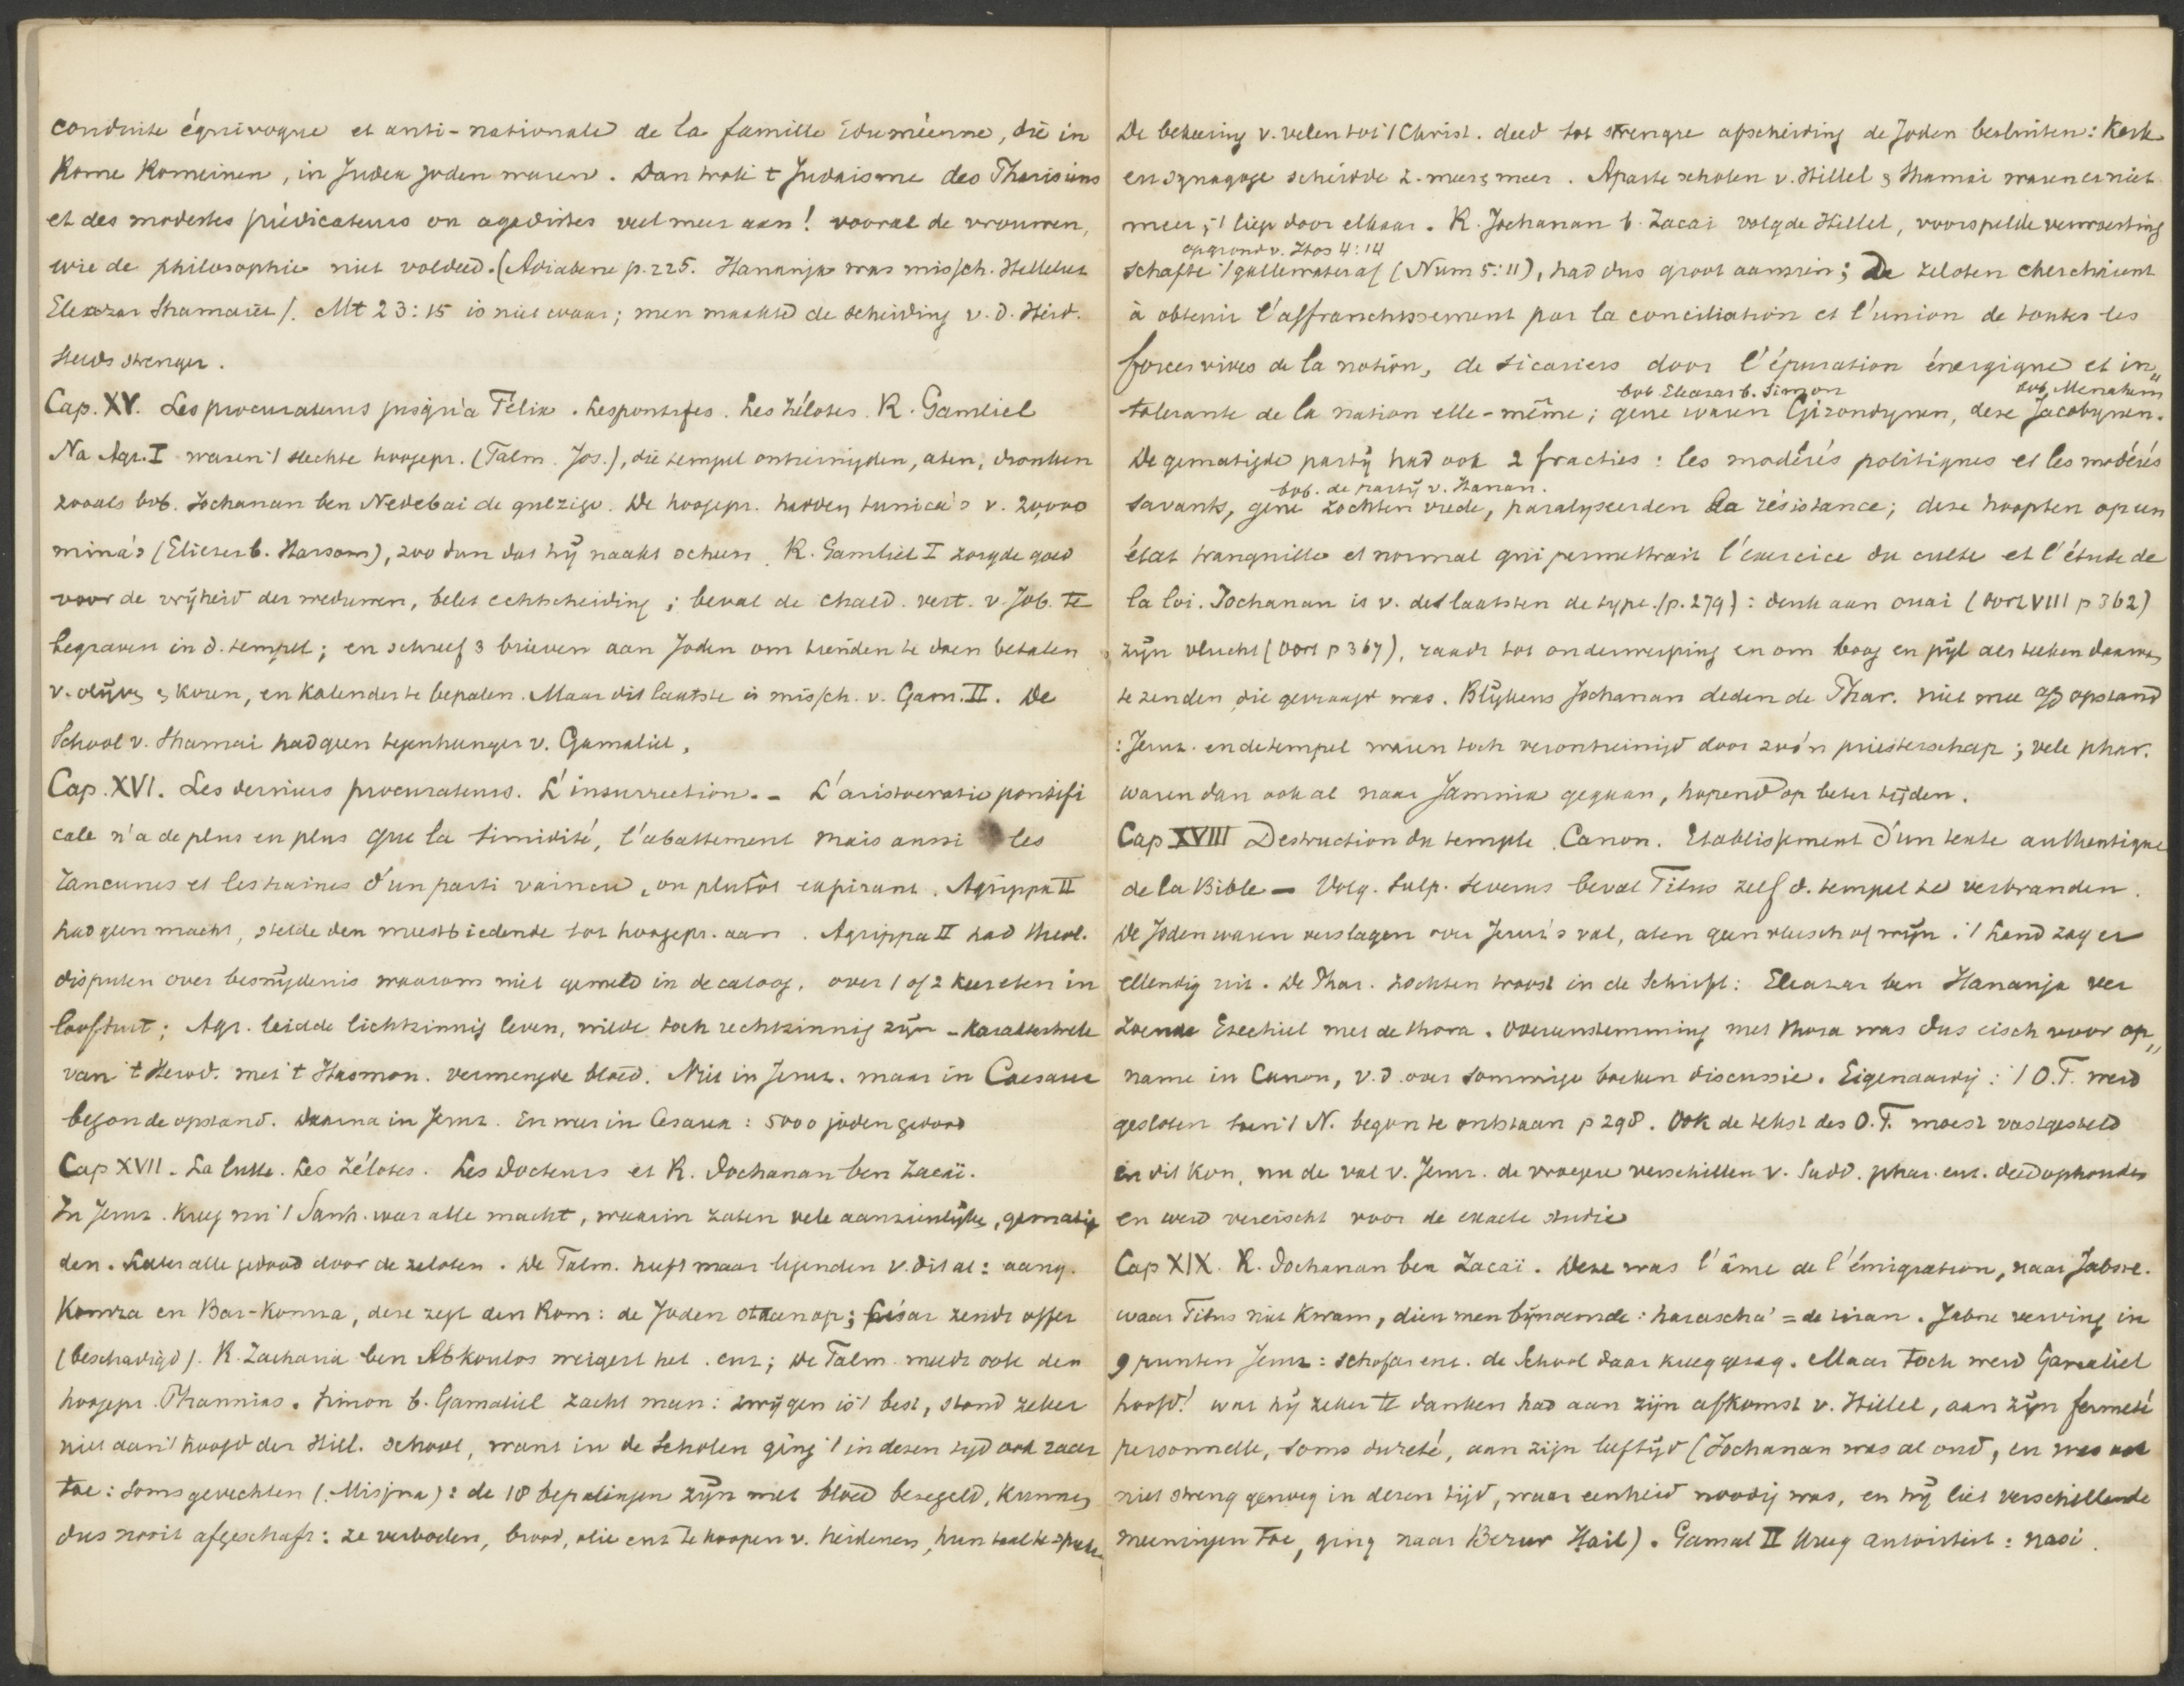 conduite équivoque et anti-nationale de la famille iduméenne, die in
Rome Romeinen, in Judea Joden waren. Dan trok 't Judaisme des Pharisiens
et des modestes prédicateurs ou agadistes veel meer aan! vooral de vrouwen,
wie de philosophie niet voldeed. (Adiabene p. 225. Hananja was missch. Helleliet
Eleazar Shamaiet). Mt 23:15 is niet waar; men maakte de scheiding v. d. Heid.
steeds strenger.
Cap. XV. Les procurateurs jusqu'à Félix. Les pontifes. Les Zélotes. R. Gamliel
Na Agr. I waren 't slechte hoogepr. (Talm. Jos.), die tempel ontreinigden, aten, dronken
zooals bvb. Jochanan ben Nedebai de gulzige. De hoogepr. hadden tunica's v. 20,000
mina's (Eliezer b. Harsom), zoo dun dat hij naakt scheen. R. Gamliel I zorgde goed
voor de vrijheid der weduwen, belet echtscheiding; beval de chald. vert. v. Job. te
begraven in d. tempel; en schreef 3 brieven aan Joden om tienden te doen betalen
v. olijven & koren, en kalender te bepalen. Maar dit laatste is missch. v. Gam. II. De
School v. Shamai had geen tegenhanger v. Gamaliel.
Cap. XVI. Les derniers procurateurs. L'insurrection. - L'aristocratie pontifi
cale n'a de plus en plus que la timidité, l'abattement mais aussi les
rancunes et les haines d'un parti vaincu, ou plutôt expirant. Agrippa II
had geen macht, stelde den meestbiedende tot hoogepr. aan. Agrippa II had theol.
disputen over besnijdenis waarom niet gemeld in decaloog, over 1 of 2 keer eten in
loofhut; Agr. leidde lichtzinnig leven, wilde toch rechtzinnig zijn - karaktertrek
van 't Herod. met 't Hasmon. vermengde bloed. Niet in Jeruz. maar in Caesarea
begon de opstand. Daarna in Jeruz. En weer in Cesarea: 5000 joden gedood
Cap XVII. La lutte. Les Zélotes. Les docteurs et R. Jochanan ben Zacaï.
In Jeruz. kreeg nu 't Sanh. weer alle macht, waarin zaten vele aanzienlijke, gematig
den. Later alle gedood door de zeloten. De Talm. heeft maar legenden v. dit al: aang.
Komza en Bar-Komza, deze zegt den Rom: de Joden staan op; César zendt offer
(beschadigd). R. Zacharia ben Abkoulos weigert het. enz; De Talm. meldt ook den
hoogepr. Phannias. Simon b. Gamaliel zacht man: zwijgen is 't best, stond zeker
niet aan 't hoofd der Hill. school, want in de Scholen ging 't in dezen tijd ook raar
toe: soms gevechten (Misjna): de 18 bepalingen zijn met bloed bezegeld, kunnen
dus nooit afgeschaft: ze verboden, brood, olie enz te koopen v. heidenen, hun taal te spreken
De bekeering v. velen tot 't Christ. deed tot strengre afscheiding de Joden besluiten: Kerk
en synagoge scheidde z. meer & meer. Aparte scholen v. Hillel & Shamai waren er niet
meer; 't liep door elkaar. R. Jochanan b. Zacai volgde Hillel, voorspelde verwoesting
op grond v. Hos 4:14
schafte 't gallewater af (Num 5:11), had dus groot aanzien; De zeloten cherchaient
à obtenir l'affranchissement par la conciliation et l'union de toutes les
forces vives de la nation, de sicariers door l'épuration énergique et in„
bvb Eleazar b. Simon bvb. Menahem
tolerante de la nation elle-même; gene waren Girondynen, deze Jacobynen.
De gematigde partij had ook 2 fracties: les modérés politiques et les modérés
bvb. de partij v. Hanan.
savants, gene zochten vrede, paralyseerden la résistance; deze hoopten op un
état tranquille et normal qui permettrait l'exercice du culte et l'étude de
la loi. Jochanan is v. de laatsten de type. (p. 279): denk aan ouai (Oort VIII p 362)
zijn vlucht (Oort p 367), raadt tot onderwerping en om boog en pijl als teeken daarvan
te zenden die gevraagd was. Blijkens Jochanan deden de Phar. niet mee op opstand
: Jeruz. en de tempel waren toch verontreinigd door zoo'n priesterschap; vele phar.
waren dan ook al naar Jamnia gegaan, hopend op beter tijden.
Cap XVIII Destruction du temple. Canon. Etablissement d'un texte authentique
de la Bible - Volg. Sulp. Severus beval Titus zelf d. tempel te verbranden.
De Joden waren verslagen over Jeruz's val, aten geen vleesch of wijn. 't Land zag er
ellendig uit. De Phar. zochten troost in de Schrift: Eleazar ben Hananja ver
zoende Ezechiel met de thora. Overeenstemming met thora was dus eisch voor op„
name in Canon, v.d over sommige boeken discussie. Eigenaardig: 't O.T. werd
gesloten toen 't N. begon te ontstaan p 298. Ook de tekst des O.T. moest vastgesteld
en dit kon, nu de val v. Jeruz. de vroegere verschillen v. Sadd. phar. enz. deed ophouden
en werd vereischt voor de exacte studie
Cap XIX. R. Jochanan ben Zacaï. Deze was l'âme de l'émigration, naar Jabne.
waar Titus niet kwam, dien men bijnoemde: harascha' = de tiran. Jabne verving in
9 punten Jeruz: schofar enz. de School daar kreeg gezag. Maar toch werd Gamaliel
hoofd! wat hij zeker te danken had aan zijn afkomst v. Hillel, aan zijn fermeté
personnelle, soms dureté, aan zijn leeftijd (Jochanan was al oud, en was ook
niet streng genoeg in dezen tijd, waar eenheid noodig was, en hij liet verschillende
meeningen toe, ging naar Berur Hail). Gamal II kreeg autoriteit: nasi.